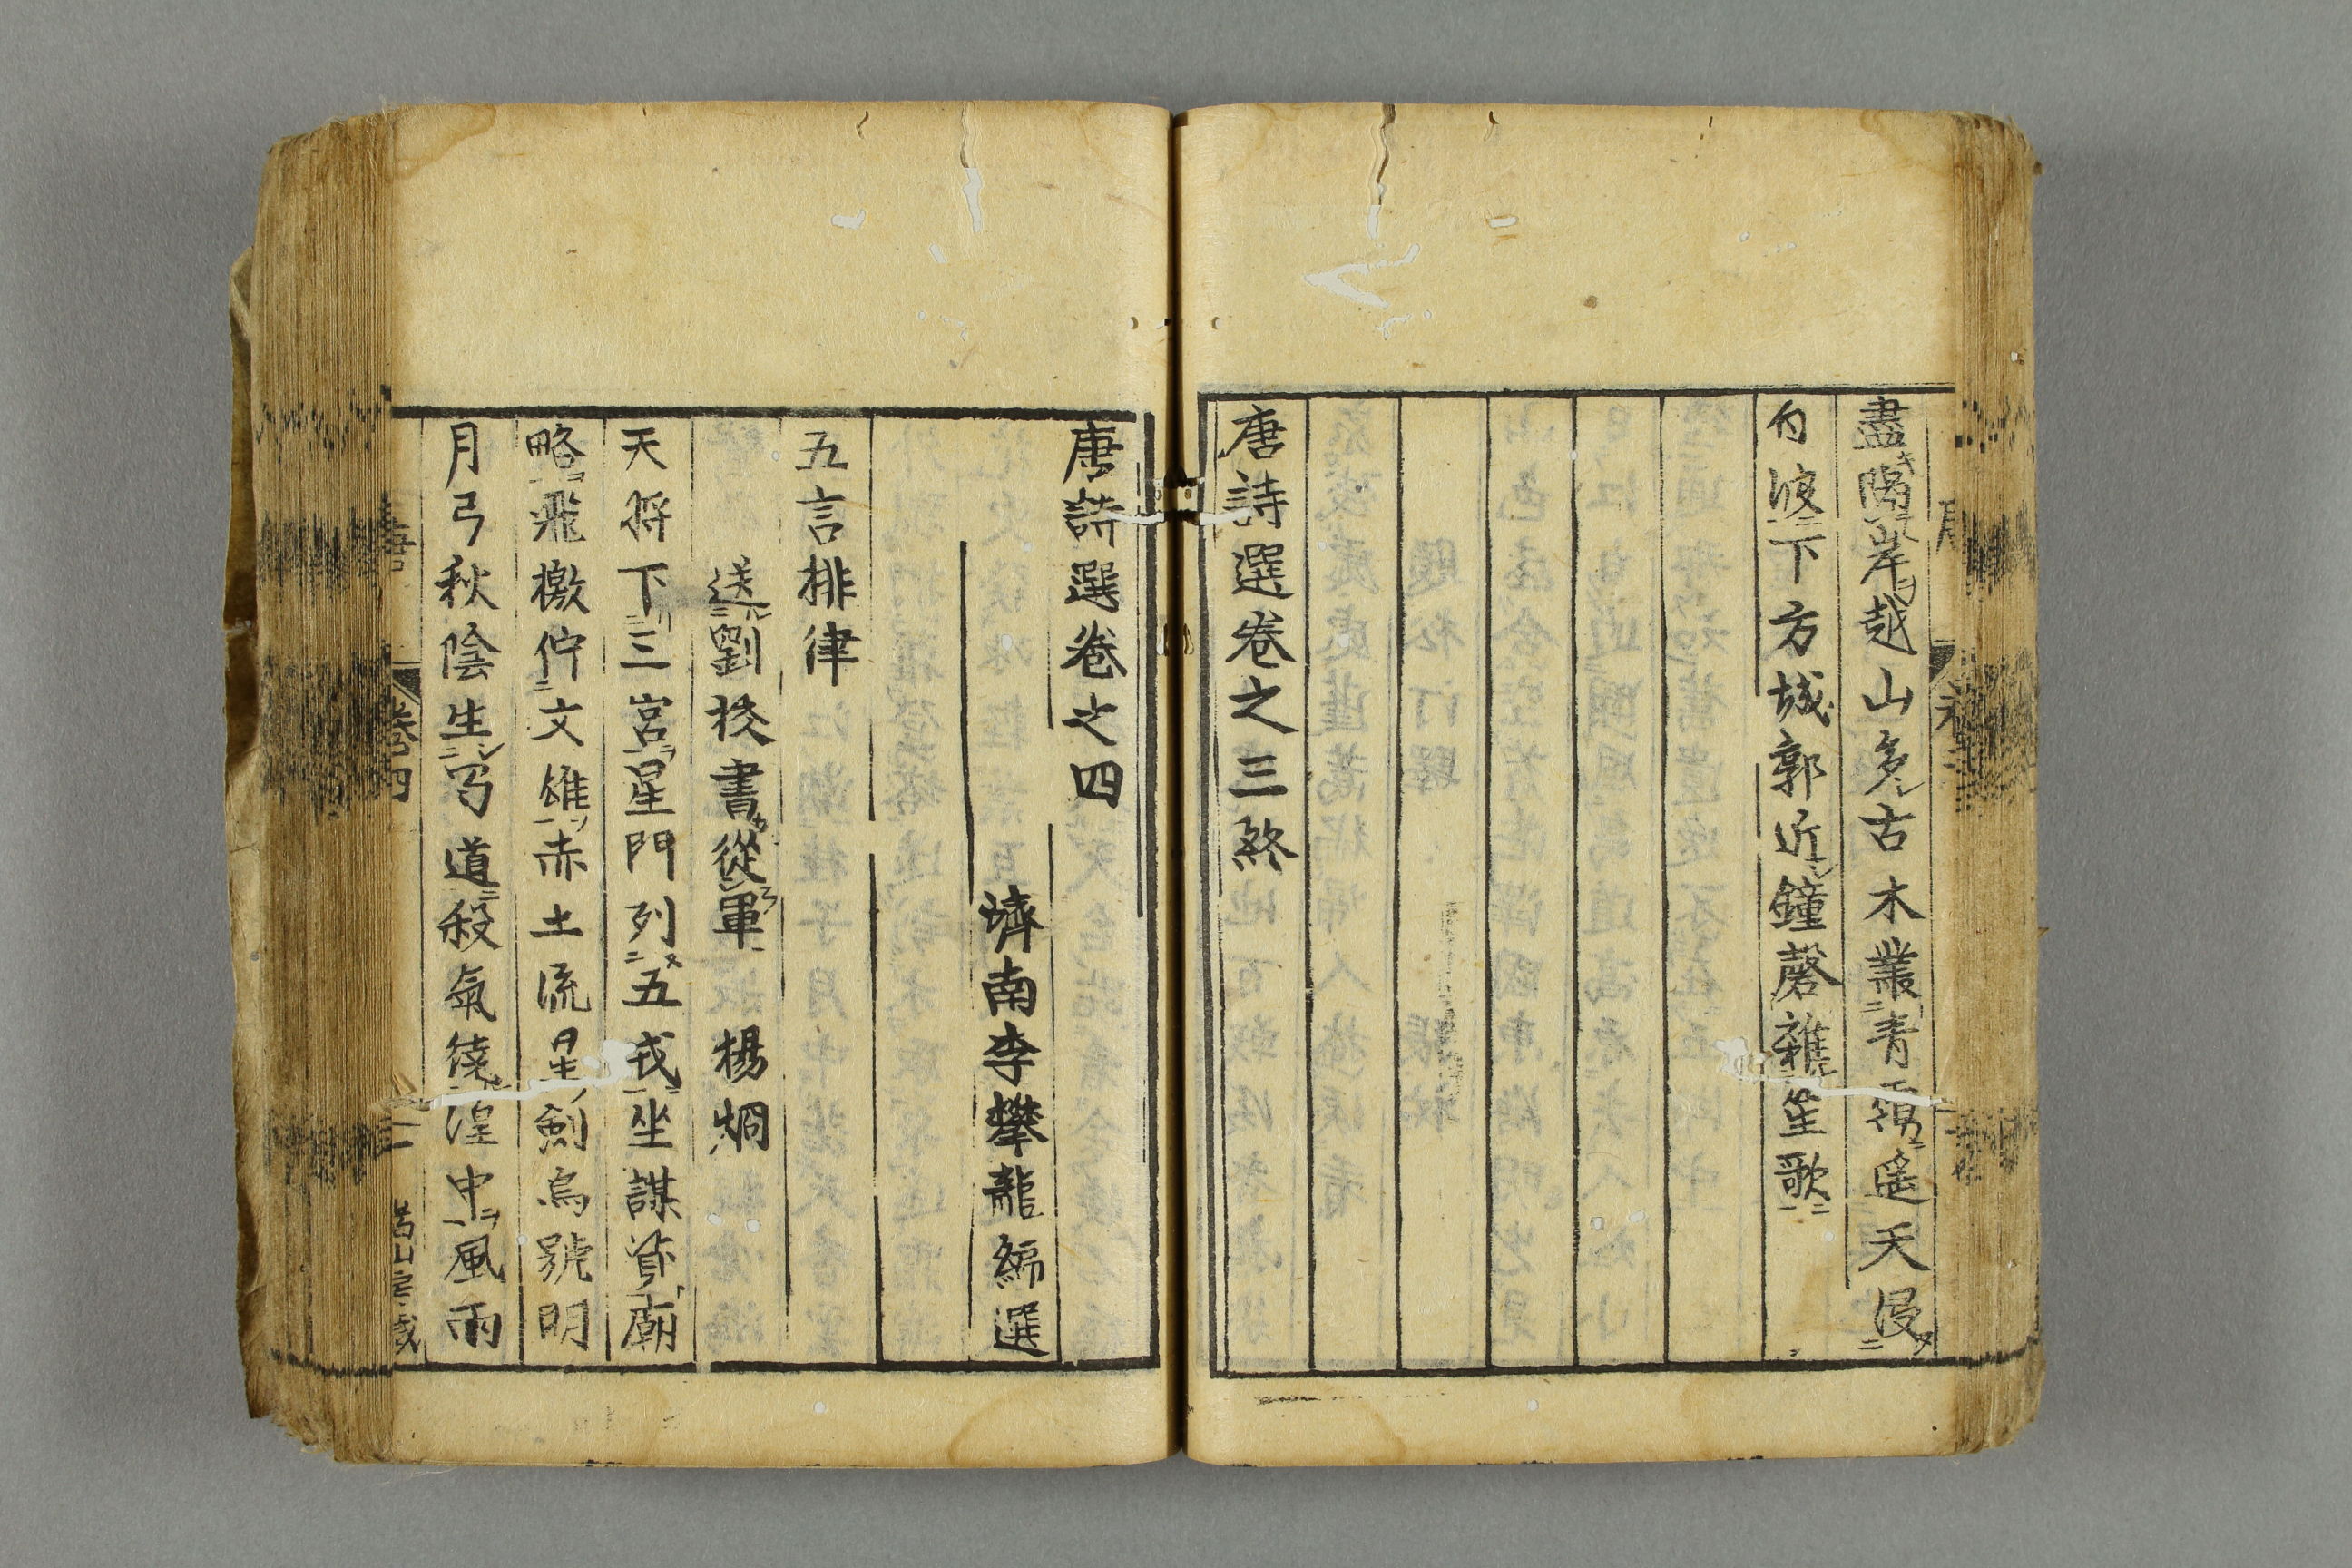 盡隔岸越山多古木叢青靄遙天浸
白波下方城郭近鐘磬雜笙歌
唐詩選卷之三終
唐詩選卷之四
濟南李攀龍編選
五言排律
送劉校書從軍　楊烱
天將下三宮星門列五戎坐謀資廟
略飛檄佇文雄赤土流星劍烏號明
月弓秋陰生蜀道殺氣繞湟中風雨
卷四